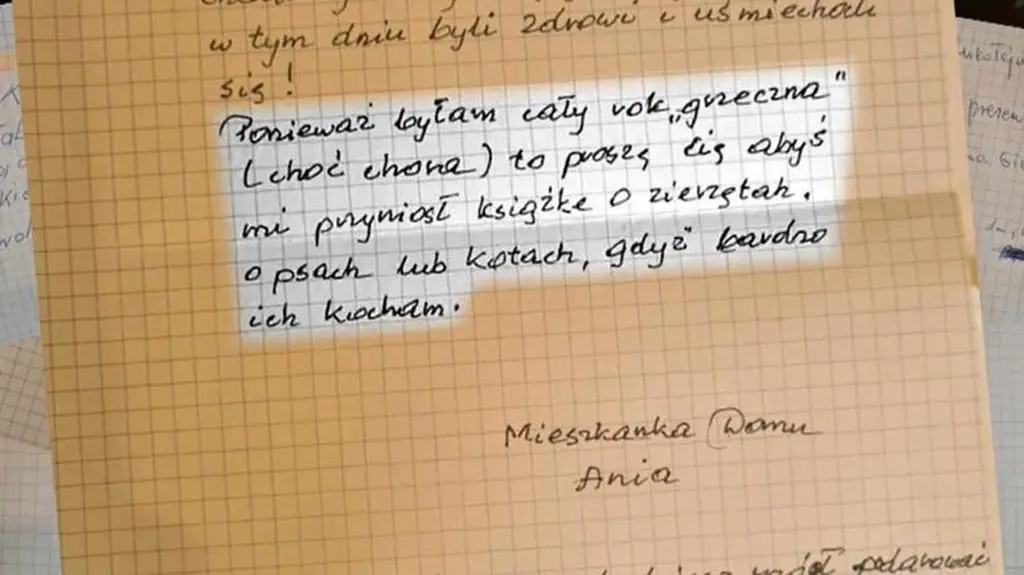 w tym dniu byli zdrowi i uśmiechali
się!
Ponieważ byłam cały rok „grzeczna"
(choć chora) to proszę cię abyś
mi przyniosł książke o zierzętah.
o psach lub kotach, gdyż bardzo
ich kocham.
Mieszkanka Domu
Ania
podarować